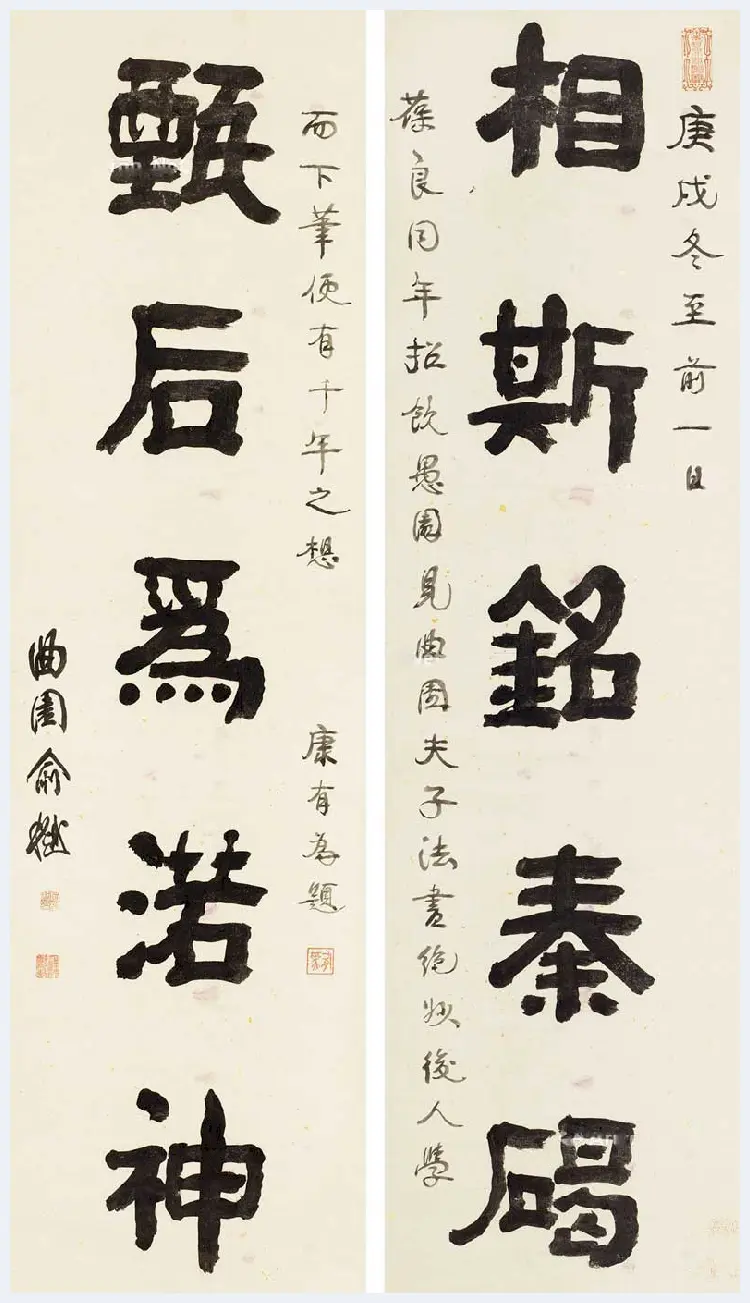 庚戌冬至前一日
相斯銘秦碣
葆良同年招飲愚園見曲園夫子法書絕妙後人學
而下筆便有千年之想
康有為題
甄后爲渃神
曲園俞樾